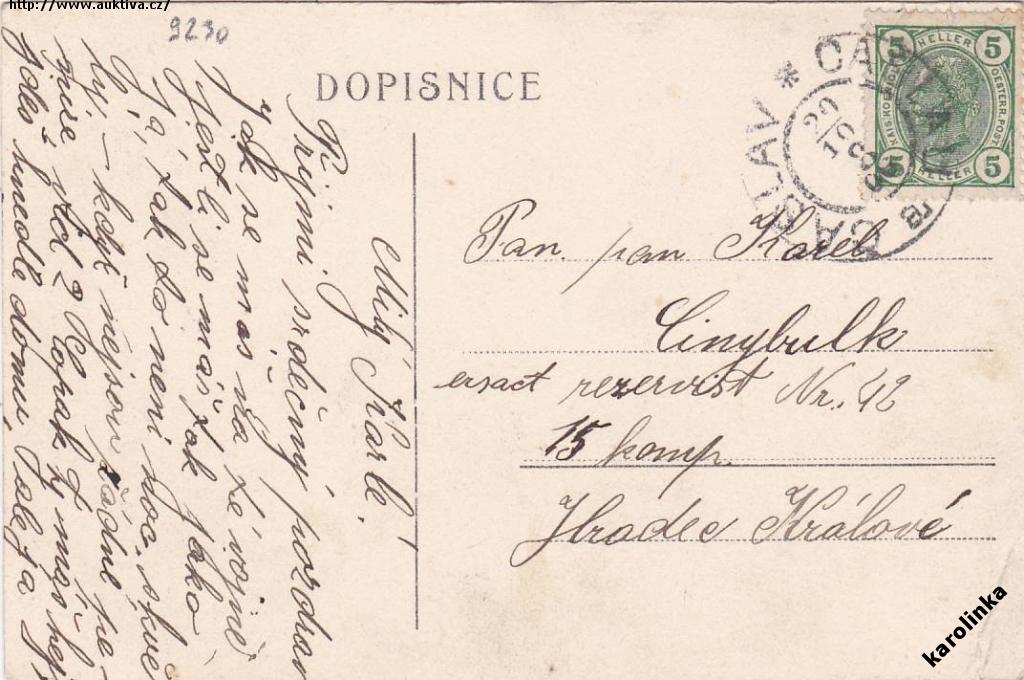 http://www.auktiva.cz/
9230
DOPISNICE
5 HELLER 5
KAIS. KÖ
OESTERR. POST
5 HELLER 5
ČASLAV * ČASLAU
20
Milý Karle!
Přijmi srdečný pozdrav
Jak se máš na té vojně
jestli se máš tak jako
já, tak to není moc skvě
lý – když nejsou žádné pe-
níze vid? Copak ty máš hej
jdeš hnedle domů, ale já
Pan. pan Karel
Cinybulk
ersact rezervist Nr. 42
15 komp.
Hradec Králové
karolinka